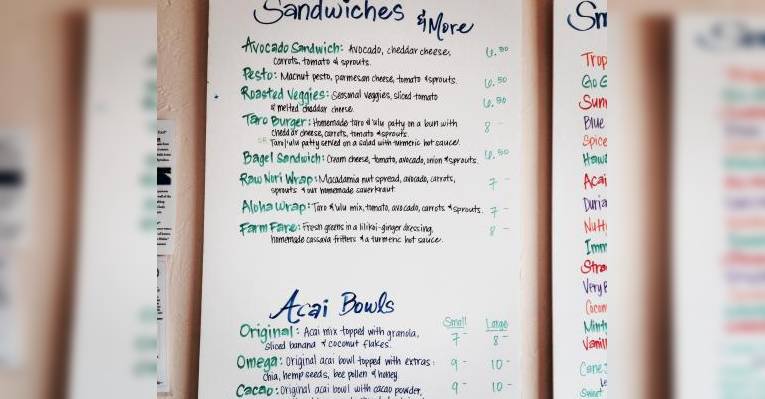 Sandwiches & More
Avocado Sandwich: Avocado, cheddar cheese, 6.50
carrots, tomato & sprouts.
Pesto: Macnut pesto, parmesan cheese, tomato & sprouts. 6.50
Roasted Veggies: Seasonal veggies, sliced tomato 6.50
& melted cheddar cheese.
Taro Burger: Homemade taro & ulu patty on a bun with 8 -
cheddar cheese, carrots, tomato & sprouts.
OR Taro/ulu patty served on a salad with turmeric hot sauce!
Bagel Sandwich: Cream cheese, tomato, avocado, onion & sprouts. 6.50
Raw Nori Wrap: Macadamia nut spread, avocado, carrots, 7 -
sprouts & our homemade sauerkraut
Aloha Wrap: Taro & ulu mix, tomato, avocado, carrots & sprouts. 7 -
Farm Fare: Fresh greens in a lilikoi-ginger dressing, 8 -
homemade cassava fritters & a turmeric hot sauce.
Acai Bowls
Small Large
Original: Acai mix topped with granola, 7 - 8 -
sliced banana & coconut flakes.
Omega: Original acai bowl topped with extras: 9 - 10 -
chia, hemp seeds, bee pollen & honey.
Cacao: Original acai bowl with cacao powder, 9 - 10 -
Sm
Trop
Go G
Sun
Blue
Spice
Hawa
Acai
Duria
Nutt
Imm
Stra
Very B
Cocon
Minty
Vanill
Cane
Sweet